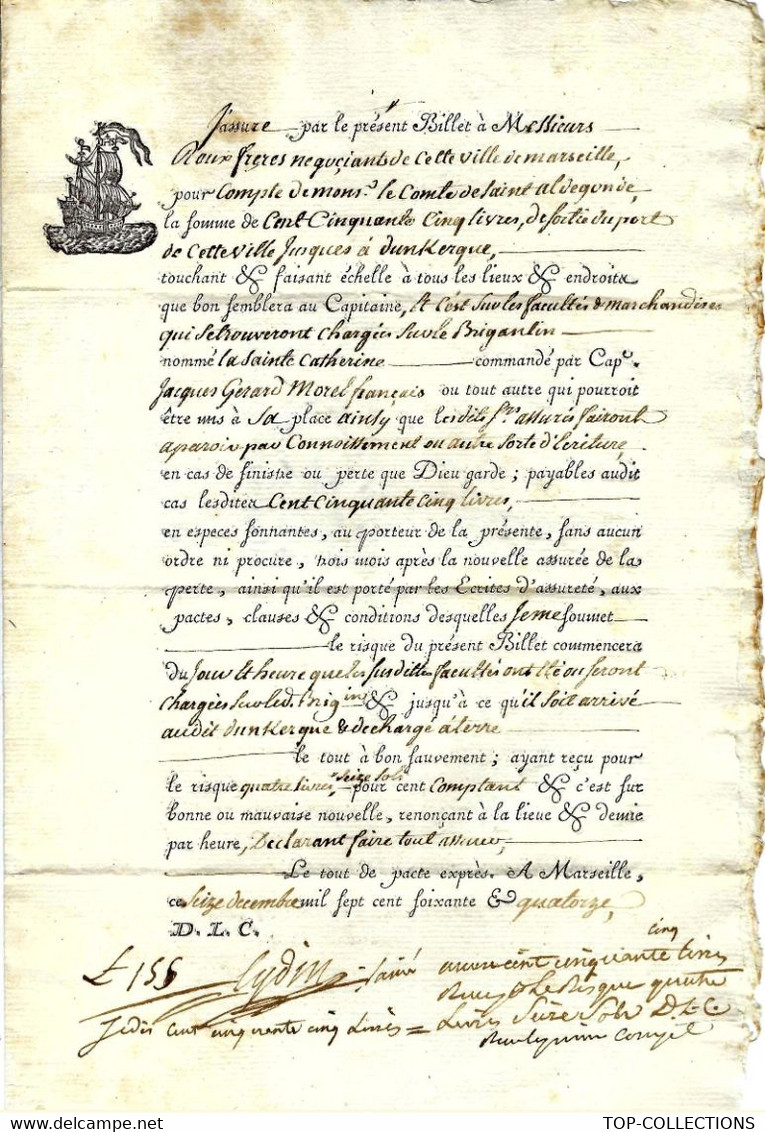 J'assure par le présent Billet à Messieurs
Roux freres neguçiants de Cette ville de marseille,
pour Compte de mons.r le Comte de Saint aldegonde,
la somme de Cent Cinquante Cinq livres, de sortie du port
de Cette ville Jusques à dunkerque,
touchant & faisant échelle à tous les lieux & endroits
que bon semblera au Capitaine, Et c'est sur les facultés & marchandises
qui se trouveront chargées sur le Brigantin
nommé la Sainte Catherine commandé par Cap.e
Jacques Gerard Morel français ou tout autre qui pourroit
être mis à sa place ainsy que lesdits S.rs assurés fairont
aparoir par Connoissement ou autre sorte d'Ecriture,
en cas de sinistre ou perte que Dieu garde ; payables audit
cas lesdites Cent Cinquante Cinq livres,
en especes sonnantes, au porteur de la présente, sans aucun
ordre ni procure, trois mois après la nouvelle assurée de la
perte, ainsi qu'il est porté par les Ecrites d'assureté, aux
pactes, clauses & conditions desquelles Je me soumet
le risque du présent Billet commencera
du Jour Et heure que les susdittes facultés ont Eté ou seront
chargées sur led. Brig.in & jusqu'à ce qu'il soit arrivé
audit dunkerque & dechargé à terre
le tout à bon sauvement ; ayant reçu pour
le risque quatre livres, seize sols pour cent Comptant & c'est sur
bonne ou mauvaise nouvelle, renonçant à la lieue & demie
par heure, Declarant faire tout assurer,
Le tout de pacte exprès. A Marseille,
ce seize decembre mil sept cent soixante & quatorze,
D. L. C.
£ 155 cent cinquante cinq livres
Le Risque quatre
Je dis cent cinquante cinq Livres = Livres Seize Sols D. L. C.
TOP-COLLECTIONS